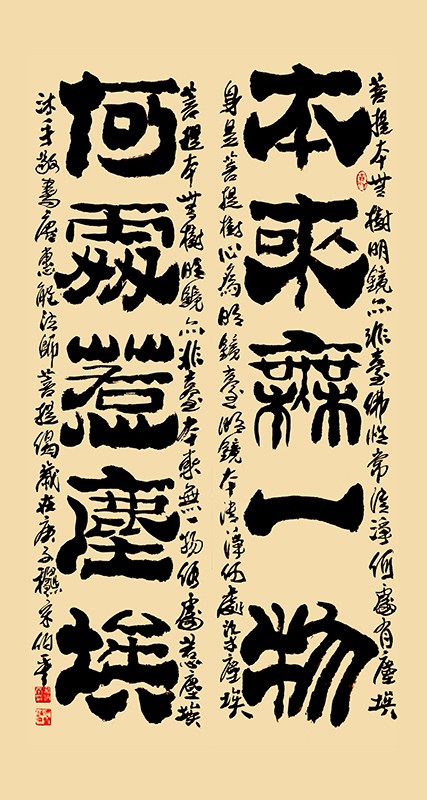 菩提本無樹明鏡亦非臺佛性常清淨何處有塵埃
本來無一物
身是菩提樹心為明鏡臺明鏡本清淨何處染塵埃
菩提本無樹明鏡亦非臺本來無一物何處惹塵埃
何處惹塵埃
沐手敬書唐惠能法師菩提偈歲在庚子